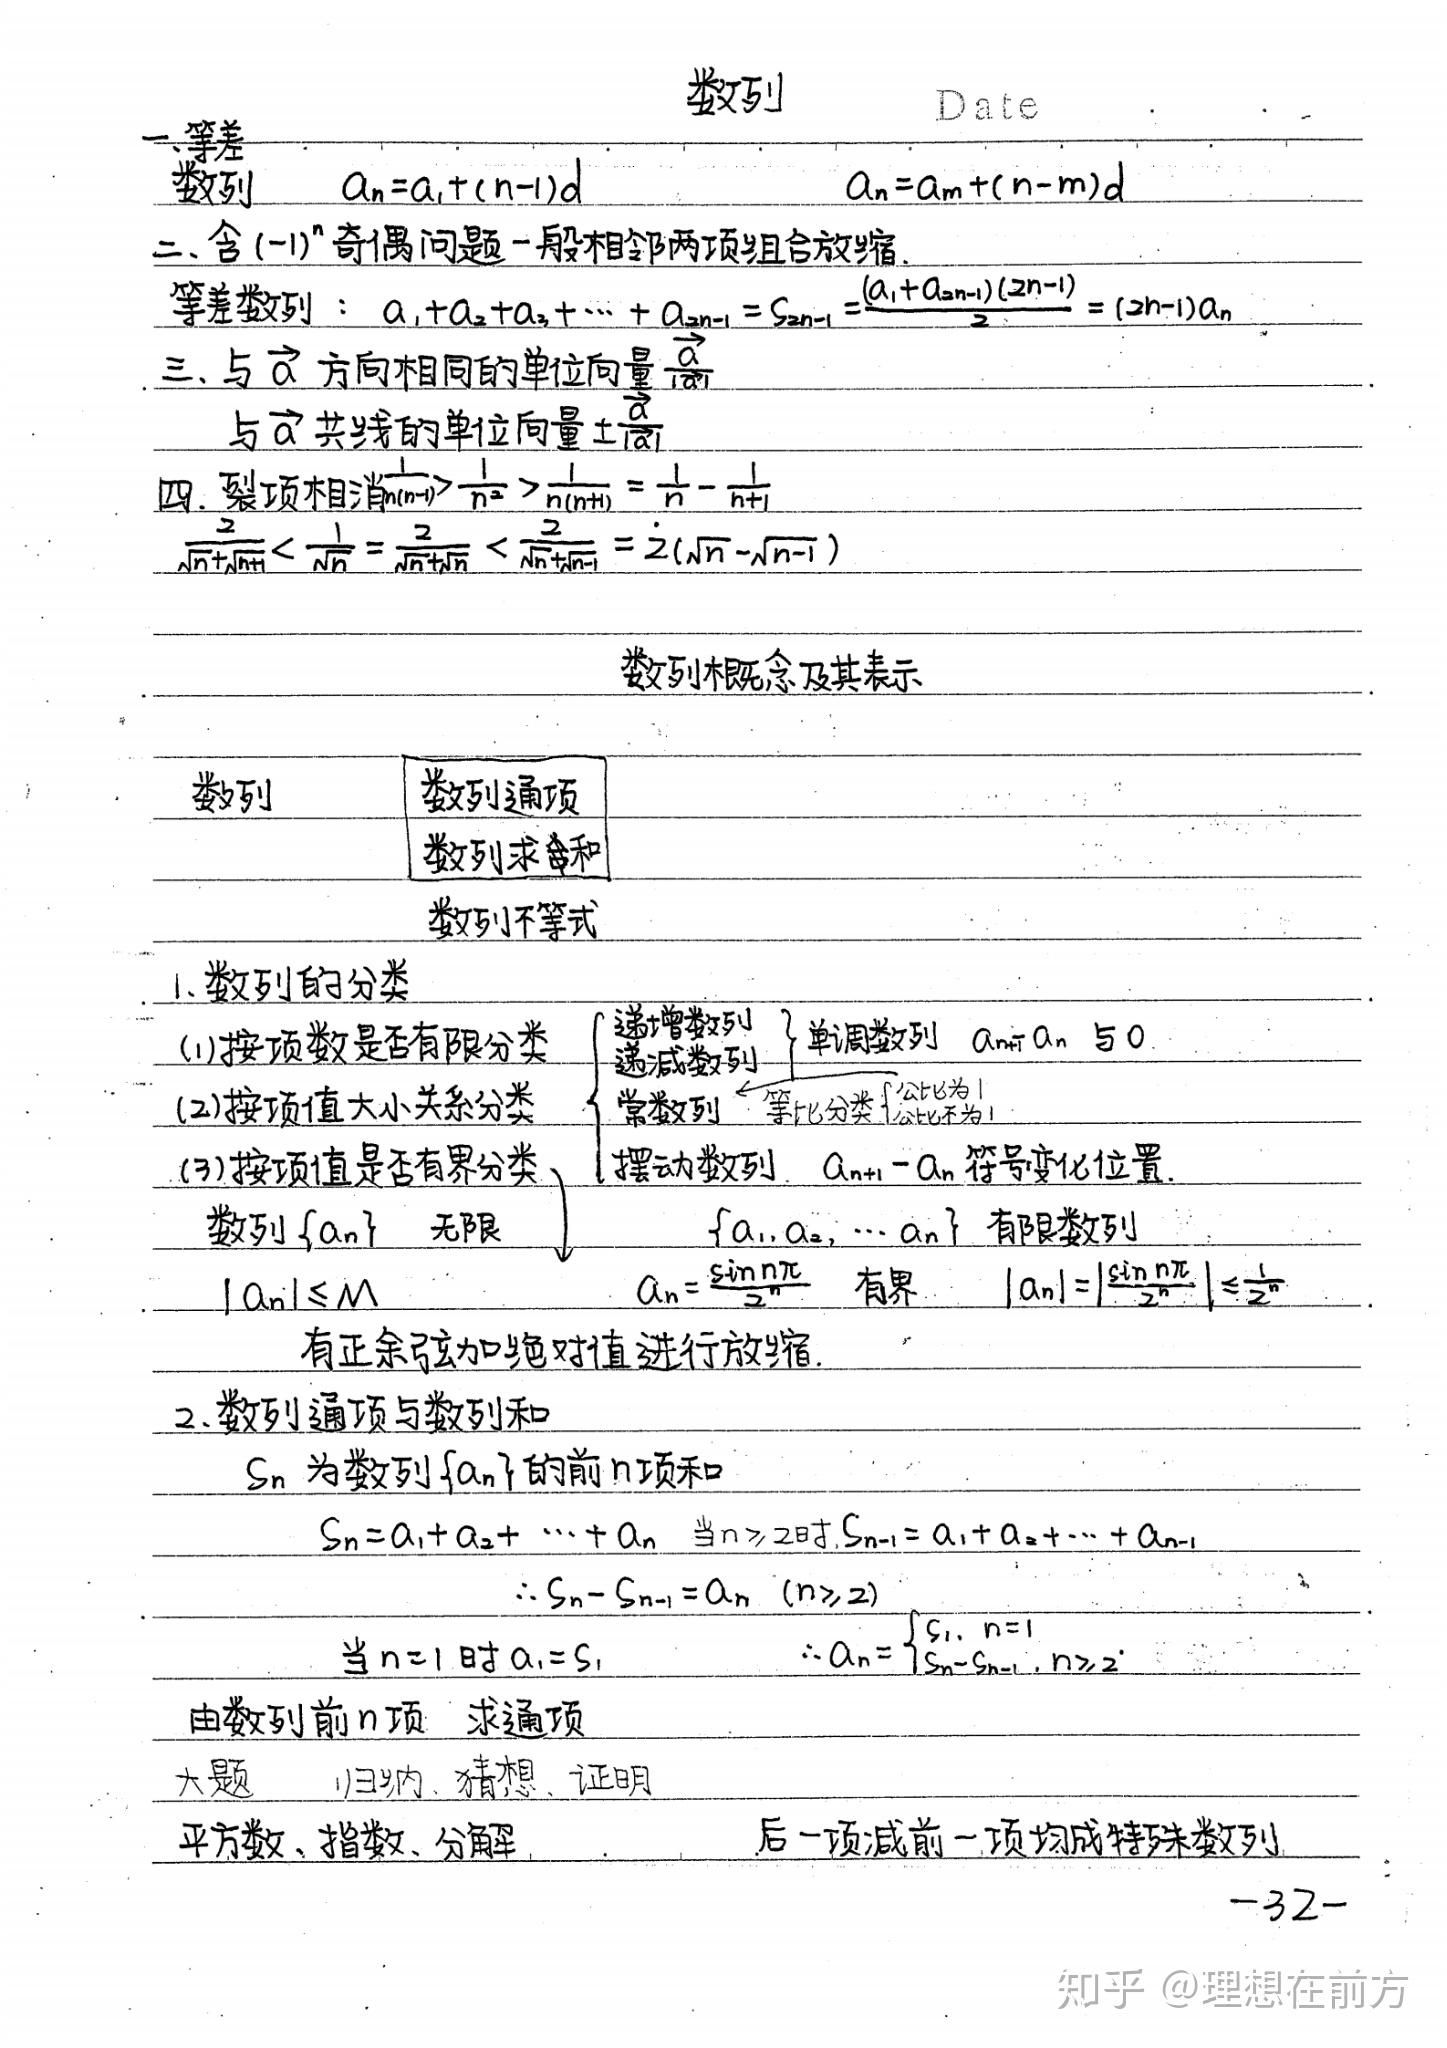 数列
Date
一、等差
数列 aₙ=a₁+(n-1)d aₙ=aₘ+(n-m)d
二、含(-1)ⁿ奇偶问题一般相邻两项组合放缩.
等差数列: a₁+a₂+a₃+…+a₂ₙ₋₁=S₂ₙ₋₁=(a₁+a₂ₙ₋₁)(2n-1)/2=(2n-1)aₙ
三、与a⃗方向相同的单位向量 a⃗/|a⃗|
与a⃗共线的单位向量±a⃗/|a⃗|
四.裂项相消 1/n(n-1)>1/n²>1/n(n+1)=1/n-1/n+1
2/(√n+√n+1)<1/√n=2/(√n+√n)<2/(√n+√n-1)=2(√n-√n-1)
数列概念及其表示
数列 数列通项
数列求和
数列不等式
1、数列的分类
(1)按项数是否有限分类 { 递增数列 递减数列 } 单调数列 aₙ₊₁-aₙ 与0
(2)按项值大小关系分类 常数列 ← 等比分类 { 公比为1 公比不为1
(3)按项值是否有界分类 摆动数列 aₙ₊₁-aₙ符号变化位置.
数列{aₙ} 无限 {a₁,a₂,…aₙ} 有限数列
|aₙ|≤M aₙ=sin nπ/2ⁿ 有界 |aₙ|=|sin nπ/2ⁿ|≤1/2ⁿ
有正余弦加绝对值进行放缩.
2、数列通项与数列和
Sₙ为数列{aₙ}的前n项和
Sₙ=a₁+a₂+…+aₙ 当n≥2时,Sₙ₋₁=a₁+a₂+…+aₙ₋₁
∴Sₙ-Sₙ₋₁=aₙ (n≥2)
当n=1时a₁=S₁ ∴aₙ={ S₁, n=1 Sₙ-Sₙ₋₁, n≥2
由数列前n项 求通项
大题 归纳、猜想、证明
平方数、指数、分解 后一项减前一项均成特殊数列
-32-
知乎 @理想在前方